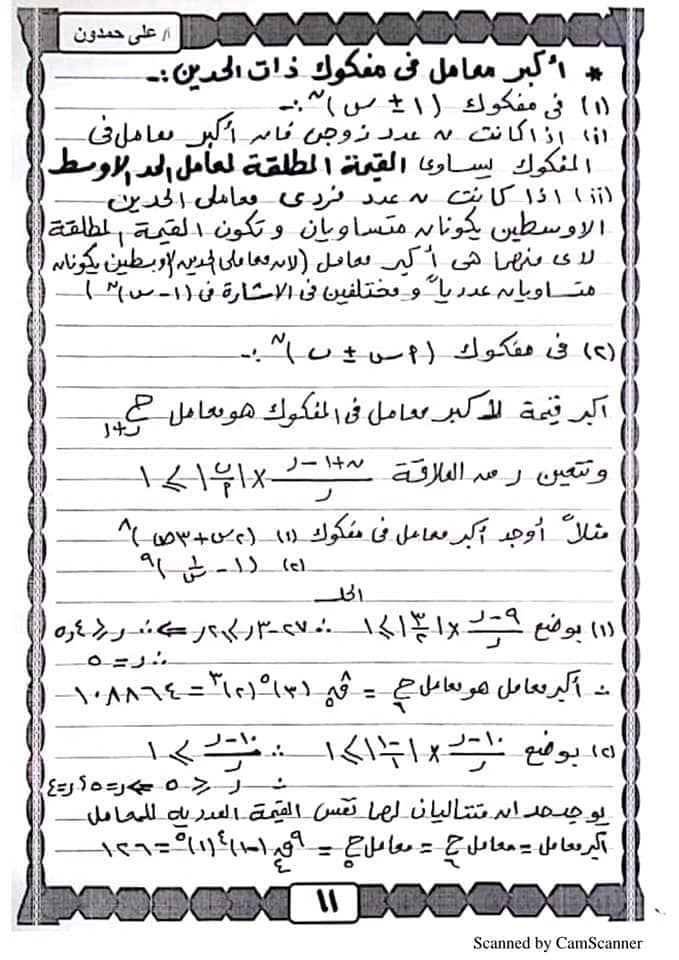 أ/ على حمدون
* أكبر معامل فى مفكوك ذات الحدين :-
(١) فى مفكوك (١ ± س)ⁿ :-
(i) إذا كانت ن عدد زوجى فإن أكبر معامل فى
المفكوك يساوى القيمة المطلقة لمعامل الحد الاوسط
(ii) اذا كانت ن عدد فردى معاملى الحدين
الاوسطين يكونان متساويان وتكون القيمة المطلقة
لاى منهما هى أكبر معامل (لان معاملى الحدين الاوسطين يكونان
متساويان عددياً و مختلفين فى الاشارة فى (١-س)ⁿ)
(٢) فى مفكوك (٢س ± ب)ⁿ :-
اكبر قيمة لأكبر معامل فى المفكوك هو معامل ح ر+١
وتتعين ر من العلاقة (ن+١-ر)/ر × |ب/٢| ≥ ١
مثلاً أوجد أكبر معامل فى مفكوك (١) (٢س+٣ص)^٨
(٢) (١ - ١/س)^٩
الحل
(١) بوضع (٩-ر)/ر × |٣/٢| ≥ ١ ∴ ٢٧-٣ر ≥ ٢ر ⇐ ∴ ر ≤ ٥,٤
∴ ر = ٥
∴ أكبر معامل هو معامل ح٦ = ^٨ق٥ (٣)^٥ (٢)^٣ = ١٠٨٨٦٤
(٢) بوضع (١٠-ر)/ر × |-١/١| ≥ ١ ∴ (١٠-ر)/ر ≥ ١
∴ ر ≤ ٥ ⇐ ر=٥ ، ر=٤
يوجد حدان متتاليان لهما نفس القيمة العددية للمعامل
أكبر معامل = معامل ح٦ = معامل ح٥ = ^٩ق٤ (-١)^٤ (١)^٥ = ١٢٦
١١
Scanned by CamScanner